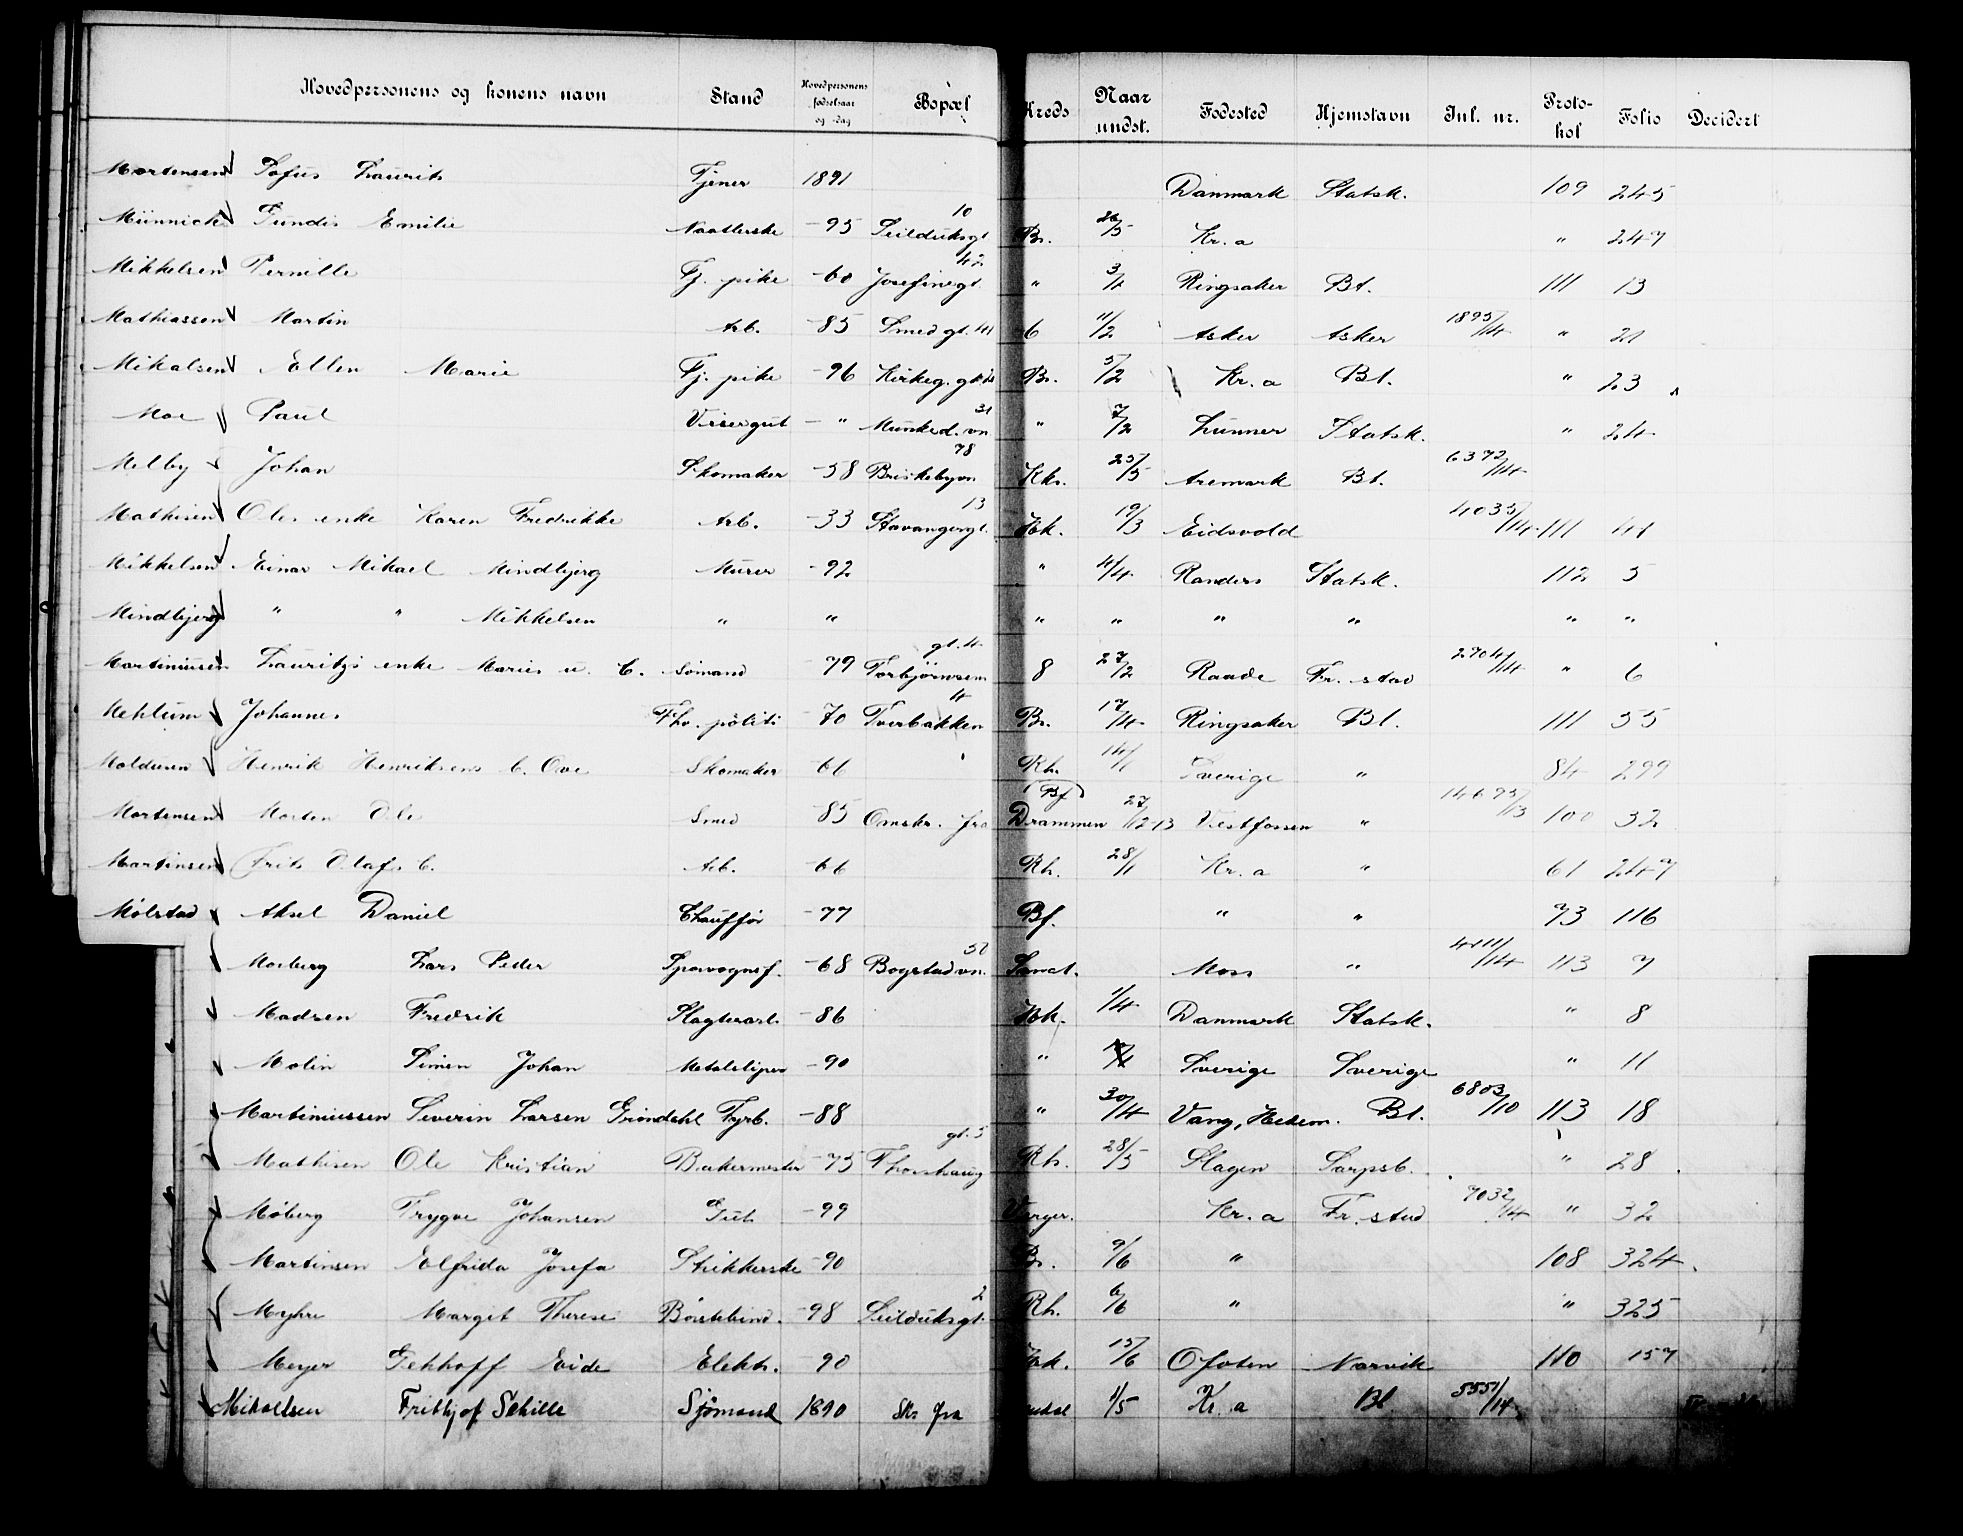 Hovedpersonens og konens navn Stand Hovedpersonens fødselsaar og -dag Bopæl Kreds Naar undst. Fødested Hjemstavn Jnl. nr. Proto-kol Folio Decidert
Mortensen Sofus Laurits Tjener 1891 Danmark Statsk. 109 245
Münnich Gundis Emilie Naatlerske -95 Seilduksgt 10 Br. 26/5 Kr.a " 247
Mikkelsen Pernille Tj. pike -60 Josefinegt. 42 " 3/4 Ringsaker Bt. 111 13
Mathiassen Martin Arb. -85 Smedgt. 41 6 11/2 Asker Asker 1895/14 " 21
Mikalsen Ellen Marie Tj. pike -96 Kirkeg. gt Br. 5/2 Kr.a Bt. " 23
Moe Paul Visergut - " Munked.vn 31 " 7/2 Lunner Statsk. " 24
Melby Johan Skomaker -58 Briskebyvn 78 Kkr. 25/5 Aremark Bt. 6372/14
Mathisen Oles enke Karen Fredrikke Arb. -33 Stavangergt. 13 Hk. 19/3 Eidsvold 4035/14 111 41
Mikkelsen Einar Mikael Mindbjerg Murer -92 " 4/4 Randers Statsk. 112 5
Mindbjerg " " Mikkelsen " " " " " " " "
Martiniusen Lauritz's enke Maries u. b. Sømand -79 Torbjørnsens gt. 4 8 27/2 Raade Fr.stad 2704/14 " 6
Mehlum Johannes Fhv. politi -70 Tverbakken 4 Br. 17/4 Ringsaker Bt. 111 55
Moldusen Henrik Henriksens b. Ove Skomaker -66 Rh. 14/1 Sverige " 84 299
Mortensen Morten Ole Smed -85 Omskr. fra Drammen (Bf) 27/12-13 Vestfossen " 14695/13 100 32
Martinsen Frits Olafs b. Arb. -66 Rh. 28/1 Kr.a " 61 247
Mølstad Aksel Daniel Chauffør -77 Bf. " " 73 116
Moberg Lars Peder Sporvognsf. -68 Bogstadvn. Sanct. Moss " 4111/14 113 7
Madsen Fredrik Slagterarb. -86 Hk. 1/4 Danmark Statsk. " 8
Molin Simen Johan Metalsliper -90 " Sverige Sverige " 11
Martiniussen Severin Larsen Grøndahl Fyrb. -88 " 30/4 Vang, Hedem. Bt. 6803/10 113 18
Mathisen Ole Kristian Bakermester -75 Thorshaug gt. 5 Rh. 28/5 Slagen Sarpsb. " 28
Moberg Trygve Johansen Gut -99 Verger. Kr.a Fr.stad 7032/14 " 32
Martinsen Elfrida Josefa Strikkerske -90 Br. 9/6 " 108 324
Myhre Marget Therese Børstebind. -98 Seilduksgt. 2 Rh. 6/6 " " 325
Meyer Gekhoff Eide Elektr. -90 Hk. 15/6 Ofoten Narvik 110 157
Mikalsen Frithjof Schille Sjømand 1890 Skr fra 1/5 Kr.a Bt 5551/14